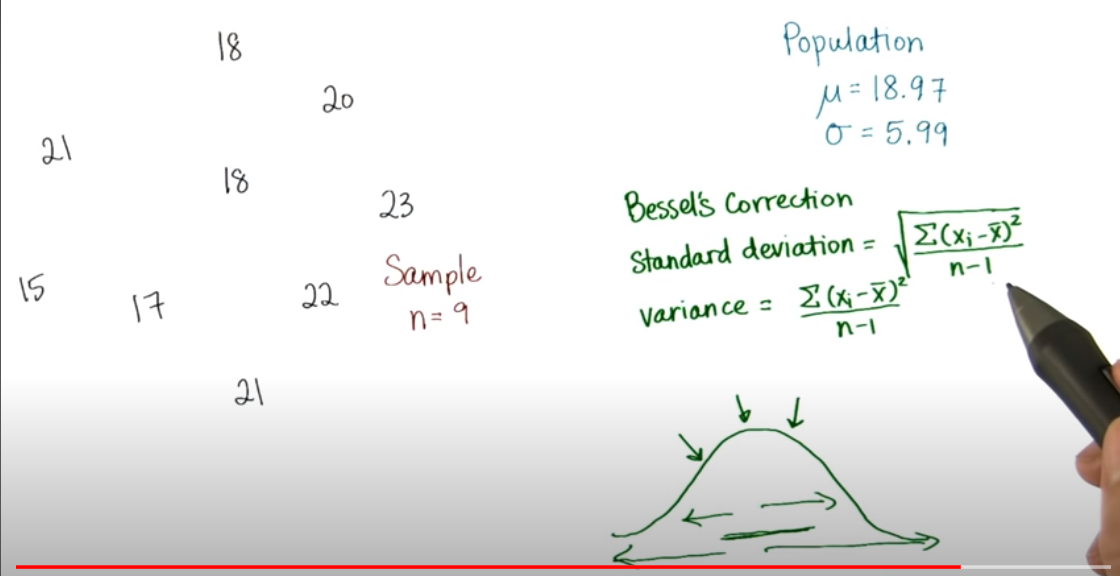 18
20
21
18
23
15
17
22
21
Sample
n=9
Population
μ=18.97
σ=5.99
Bessel's Correction
Standard deviation = √(Σ(xᵢ-x̄)²/(n-1))
variance = Σ(xᵢ-x̄)²/(n-1)